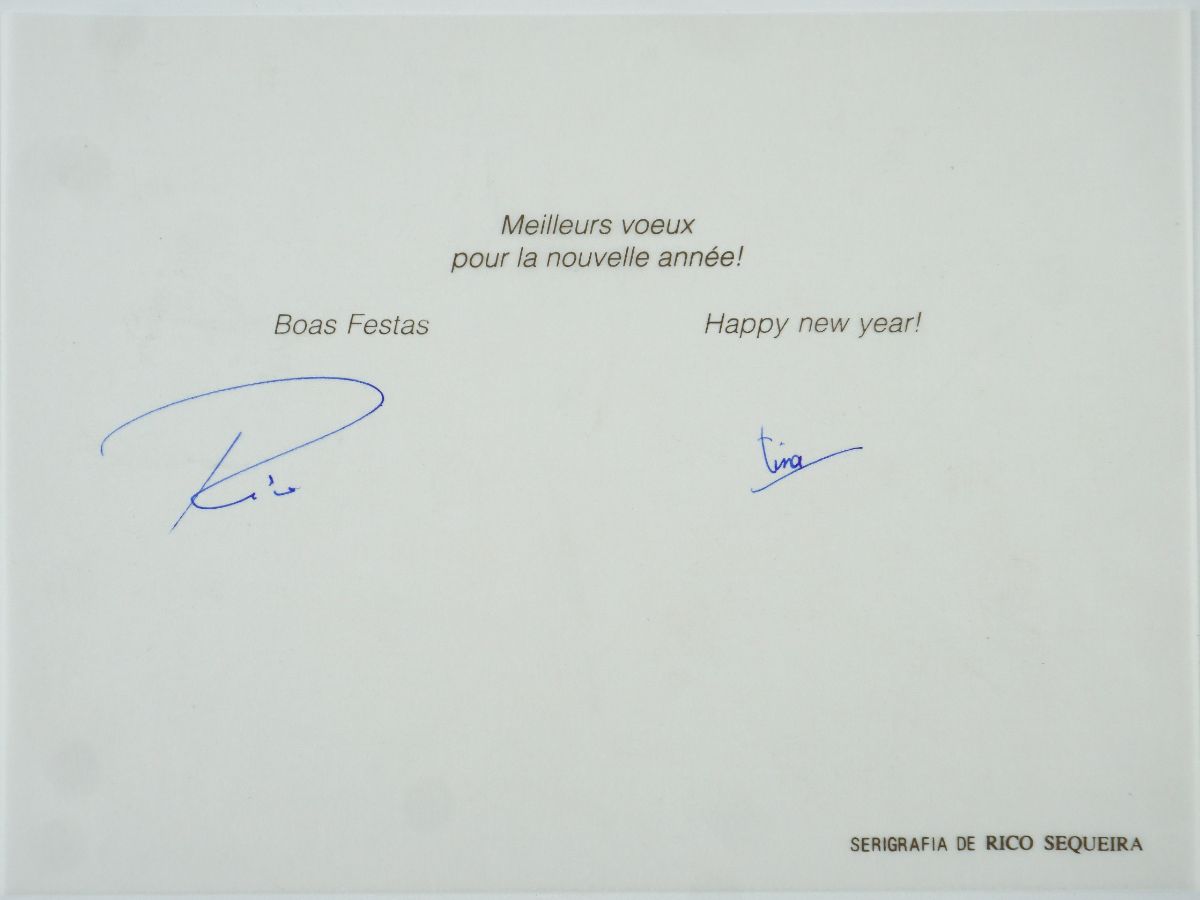 Meilleurs voeux
pour la nouvelle année!
Boas Festas
Happy new year!
Rico
tina
SERIGRAFIA DE RICO SEQUEIRA